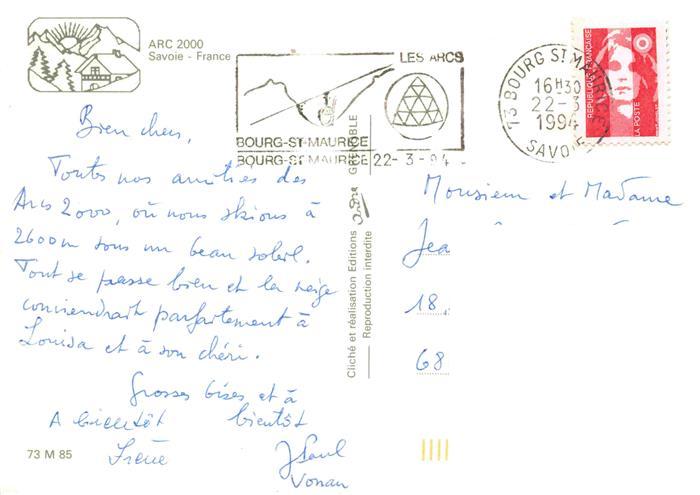 ARC 2000
Savoie - France
LES ARCS
BOURG-ST-MAURICE
BOURG-ST MAURICE 22-3-94
73 BOURG ST MAURICE
16H30
22-3
1994
SAVOIE
RÉPUBLIQUE FRANÇAISE
LA POSTE
Bien chers,
Toutes nos amitiés des
Arcs 2000, où nous skions à
2600m sous un beau soleil.
Tout se passe bien et la neige
conviendrait parfaitement à
Louisa et à son chéri.
Grosses bises et à
bientôt
A bientôt
Irène
J Paul
Vonau
73 M 85
Cliché et réalisation Editions André GRENOBLE
Reproduction interdite
Monsieur et Madame
Jea
18
68